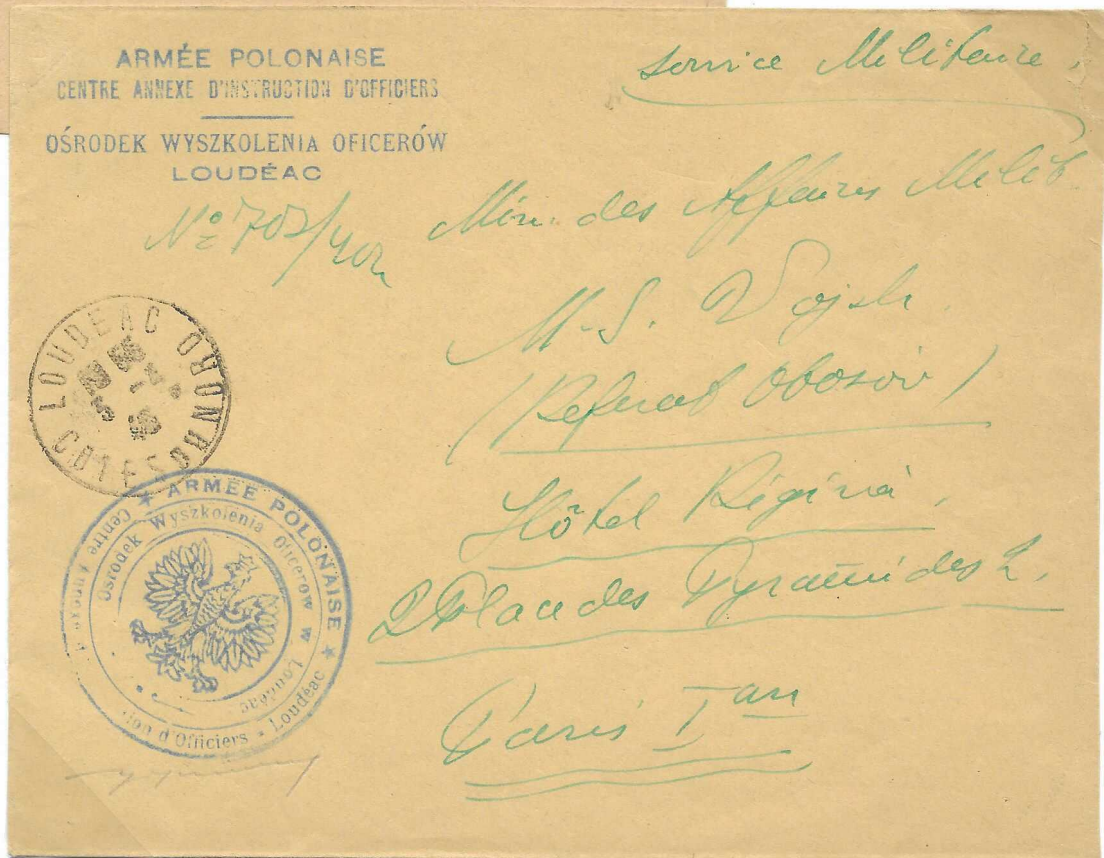 ARMÉE POLONAISE
CENTRE ANNEXE D'INSTRUCTION D'OFFICIERS
OŚRODEK WYSZKOLENIA OFICERÓW
LOUDÉAC
Service Militaire.
Nº 702/40
Min. des Affaires Milit.
M.S. Wojsk.
(Referat Obozów)
Hôtel Régina,
2 Place des Pyramides 2.
Paris I
LOUDEAC
COTES DU NORD
★ ARMÉE POLONAISE ★
Centre Annexe
tion d'Officiers • Loudéac
Ośrodek Wyszkolenia Oficerów w Loudéac